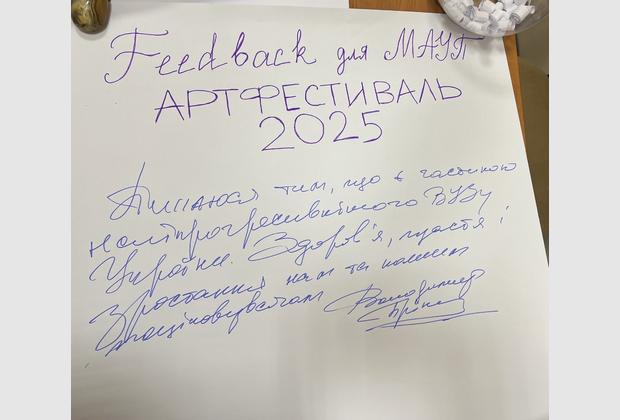 Feedback для МАУП
АРТФЕСТИВАЛЬ
2025
Пишаюся тим, що є частиною
найпрогресивнішого ВУЗу
України. Здоров'я, щастя і
зростання нам та нашим
поціновувачам
Володимир